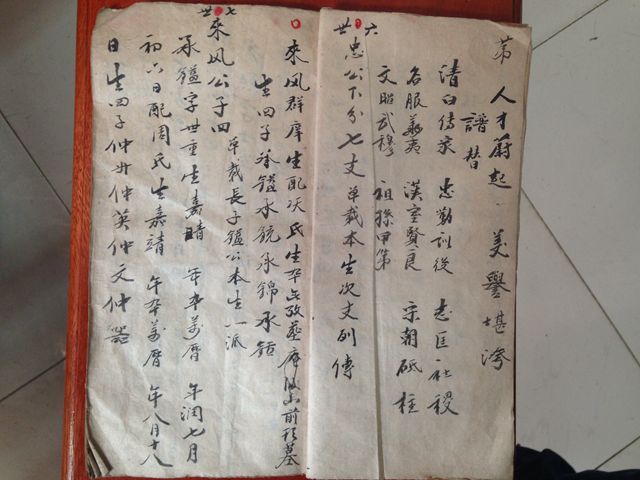 苐 人才蔚起 美譽堪誇
譜替
清白傳家 忠勤訓後 志匡社稷
名服華夷 漢室賢良 宋朝砥柱
文昭武穆 祖孫甲第
六世
忠公下分七支单载本生次支列傳
來凤群庠生配 氏生卒失攷墓 前祖墓
生四子承鎰承銃承錦承
七世
來凤公子四单载長子鎰公本生一派
承鎰字世重生嘉晴 年卒萬曆 年润七月
初六日配周氏生嘉靖 年卒萬曆 年八月十八
日生四子仲 仲英仲文仲器